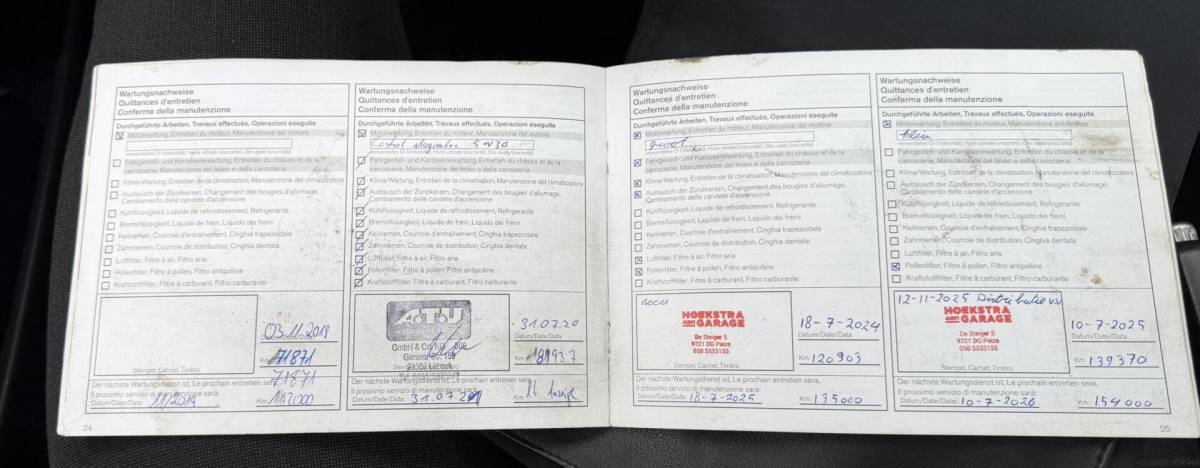 Wartungsnachweise
Quittances d'entretien
Conferma della manutenzione
Durchgeführte Arbeiten, Travaux effectués, Operazioni eseguite
Motorwartung, Entretien du moteur, Manutenzione del motore
Fahrgestell- und Karosseriewartung, Entretien du châssis et de la
carrosserie, Manutenzione del telaio e della carrozzeria
Klima-Wartung, Entretien de la climatisation, Manutenzione del climatizzatore
Austausch der Zündkerzen, Changement des bougies d'allumage,
Cambiamento delle candele d'accensione
Kühlflüssigkeit, Liquide de refroidissement, Refrigerante
Bremsflüssigkeit, Liquide de frein, Liquido dei freni
Keilriemen, Courroie d'entraînement, Cinghia trapezoidale
Zahnriemen, Courroie de distribution, Cinghia dentata
Luftfilter, Filtre à air, Filtro aria
Pollenfilter, Filtre à pollen, Filtro antipolline
Kraftstofffilter, Filtre à carburant, Filtro carburante
03.11.2019
Datum/Date/Data
71871
Km
71871
Stempel, Cachet, Timbro
Der nächste Wartungsdienst ist, Le prochain entretien sera,
Il prossimo servizio di manutenzione sarà:
Datum/Date/Data:
Km:
24
Wartungsnachweise
Quittances d'entretien
Conferma della manutenzione
Durchgeführte Arbeiten, Travaux effectués, Operazioni eseguite
Motorwartung, Entretien du moteur, Manutenzione del motore
Castrol Magnatec 5W30
Fahrgestell- und Karosseriewartung, Entretien du châssis et de la
carrosserie, Manutenzione del telaio e della carrozzeria
Klima-Wartung, Entretien de la climatisation, Manutenzione del climatizzatore
Austausch der Zündkerzen, Changement des bougies d'allumage,
Cambiamento delle candele d'accensione
Kühlflüssigkeit, Liquide de refroidissement, Refrigerante
Bremsflüssigkeit, Liquide de frein, Liquido dei freni
Keilriemen, Courroie d'entraînement, Cinghia trapezoidale
Zahnriemen, Courroie de distribution, Cinghia dentata
Luftfilter, Filtre à air, Filtro aria
Pollenfilter, Filtre à pollen, Filtro antipolline
Kraftstofffilter, Filtre à carburant, Filtro carburante
A.T.U
GmbH & Co. KG
31.07.20
Datum/Date/Data
Km 81937
Stempel, Cachet, Timbro
Der nächste Wartungsdienst ist, Le prochain entretien sera,
Il prossimo servizio di manutenzione sarà:
Datum/Date/Data: 31.07.21
Km: lt. Anzeige
Wartungsnachweise
Quittances d'entretien
Conferma della manutenzione
Durchgeführte Arbeiten, Travaux effectués, Operazioni eseguite
Motorwartung, Entretien du moteur, Manutenzione del motore
groot
Fahrgestell- und Karosseriewartung, Entretien du châssis et de la
carrosserie, Manutenzione del telaio e della carrozzeria
Klima-Wartung, Entretien de la climatisation, Manutenzione del climatizzatore
Austausch der Zündkerzen, Changement des bougies d'allumage,
Cambiamento delle candele d'accensione
Kühlflüssigkeit, Liquide de refroidissement, Refrigerante
Bremsflüssigkeit, Liquide de frein, Liquido dei freni
Keilriemen, Courroie d'entraînement, Cinghia trapezoidale
Zahnriemen, Courroie de distribution, Cinghia dentata
Luftfilter, Filtre à air, Filtro aria
Pollenfilter, Filtre à pollen, Filtro antipolline
Kraftstofffilter, Filtre à carburant, Filtro carburante
accu
HOEKSTRA
GARAGE
De Steiger 5
9321 DG Peize
050 5033155
18-7-2024
Datum/Date/Data
Km 120903
Stempel, Cachet, Timbro
Der nächste Wartungsdienst ist, Le prochain entretien sera,
Il prossimo servizio di manutenzione sarà:
Datum/Date/Data: 18-7-2025
Km: 135000
Wartungsnachweise
Quittances d'entretien
Conferma della manutenzione
Durchgeführte Arbeiten, Travaux effectués, Operazioni eseguite
Motorwartung, Entretien du moteur, Manutenzione del motore
klein
Fahrgestell- und Karosseriewartung, Entretien du châssis et de la
carrosserie, Manutenzione del telaio e della carrozzeria
Klima-Wartung, Entretien de la climatisation, Manutenzione del climatizzatore
Austausch der Zündkerzen, Changement des bougies d'allumage,
Cambiamento delle candele d'accensione
Kühlflüssigkeit, Liquide de refroidissement, Refrigerante
Bremsflüssigkeit, Liquide de frein, Liquido dei freni
Keilriemen, Courroie d'entraînement, Cinghia trapezoidale
Zahnriemen, Courroie de distribution, Cinghia dentata
Luftfilter, Filtre à air, Filtro aria
Pollenfilter, Filtre à pollen, Filtro antipolline
Kraftstofffilter, Filtre à carburant, Filtro carburante
12-11-2025 Distributie vv
HOEKSTRA
GARAGE
De Steiger 5
9321 DG Peize
050 5033155
10-7-2025
Datum/Date/Data
Km: 139370
Stempel, Cachet, Timbro
Der nächste Wartungsdienst ist, Le prochain entretien sera,
Il prossimo servizio di manutenzione sarà:
Datum/Date/Data: 10-7-2026
Km: 154000
25